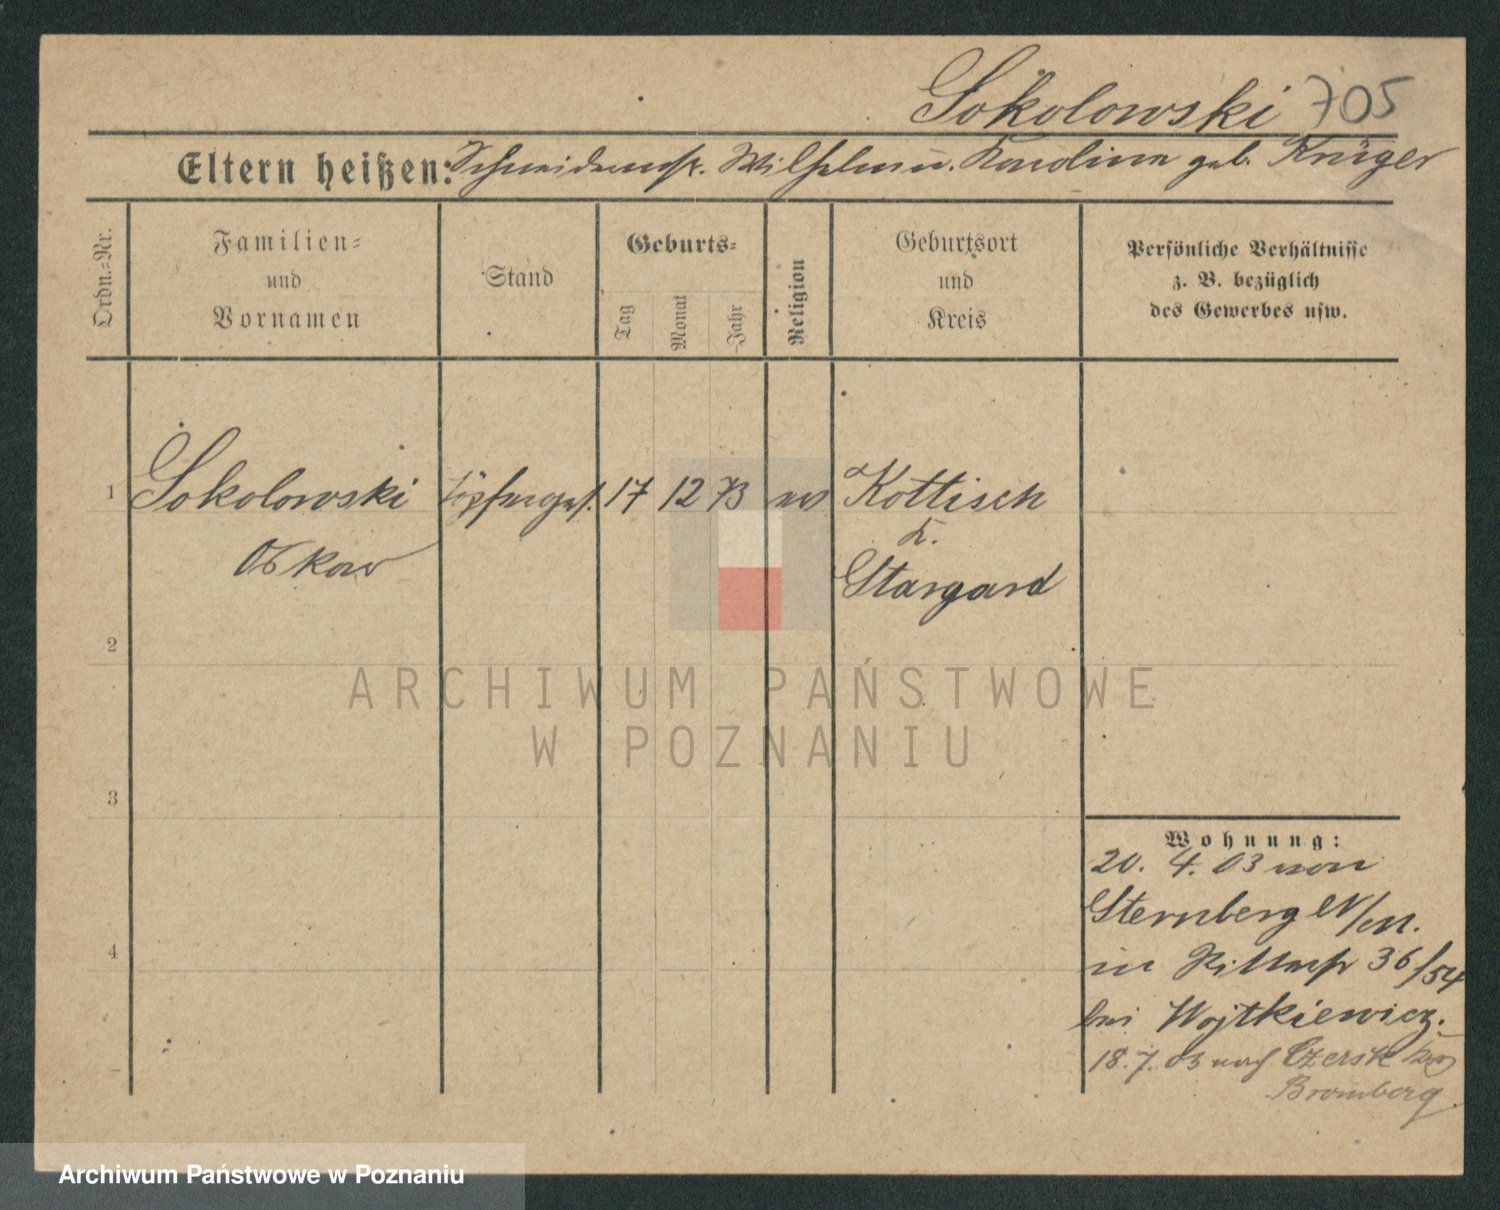 Sokolowski 705
Eltern heißen: Schneidermstr. Wilhelm u. Karolina geb. Krüger
Ordn.-Nr.
Familien-
und
Vornamen
Stand
Geburts-
Tag
Monat
Jahr
Religion
Geburtsort
und
Kreis
Persönliche Verhältnisse
z. B. bezüglich
des Gewerbes usw.
1 Sokolowski Töpferges. 17 12 73 Kottisch
K.
Stargard
2
3
4
Wohnung:
20. 4. 03 von
Sternberg N/M.
in 36/54
bei Wojtkiewicz.
18. 7. 03 nach Czersk
Bromberg
ARCHIWUM PAŃSTWOWE
W POZNANIU
Archiwum Państwowe w Poznaniu